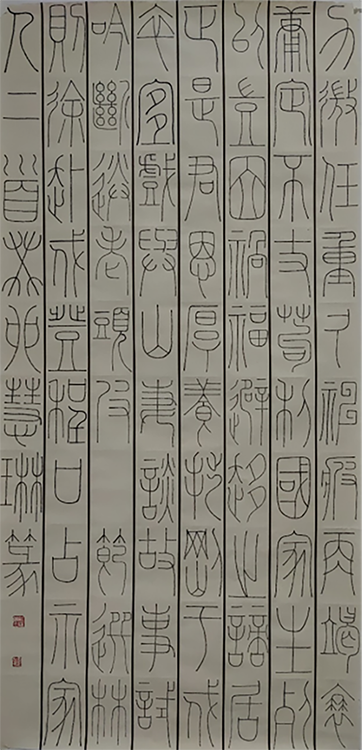 力微任重久神疲再竭衰
庸定不支苟利國家生死
以豈因禍福避趨之謫居
正是君恩厚養拙剛于戍
卒宜戲與山妻談故事試
吟斷送老頭皮 節選林
則徐赴戍登程口占示家
人二首慧琳篆